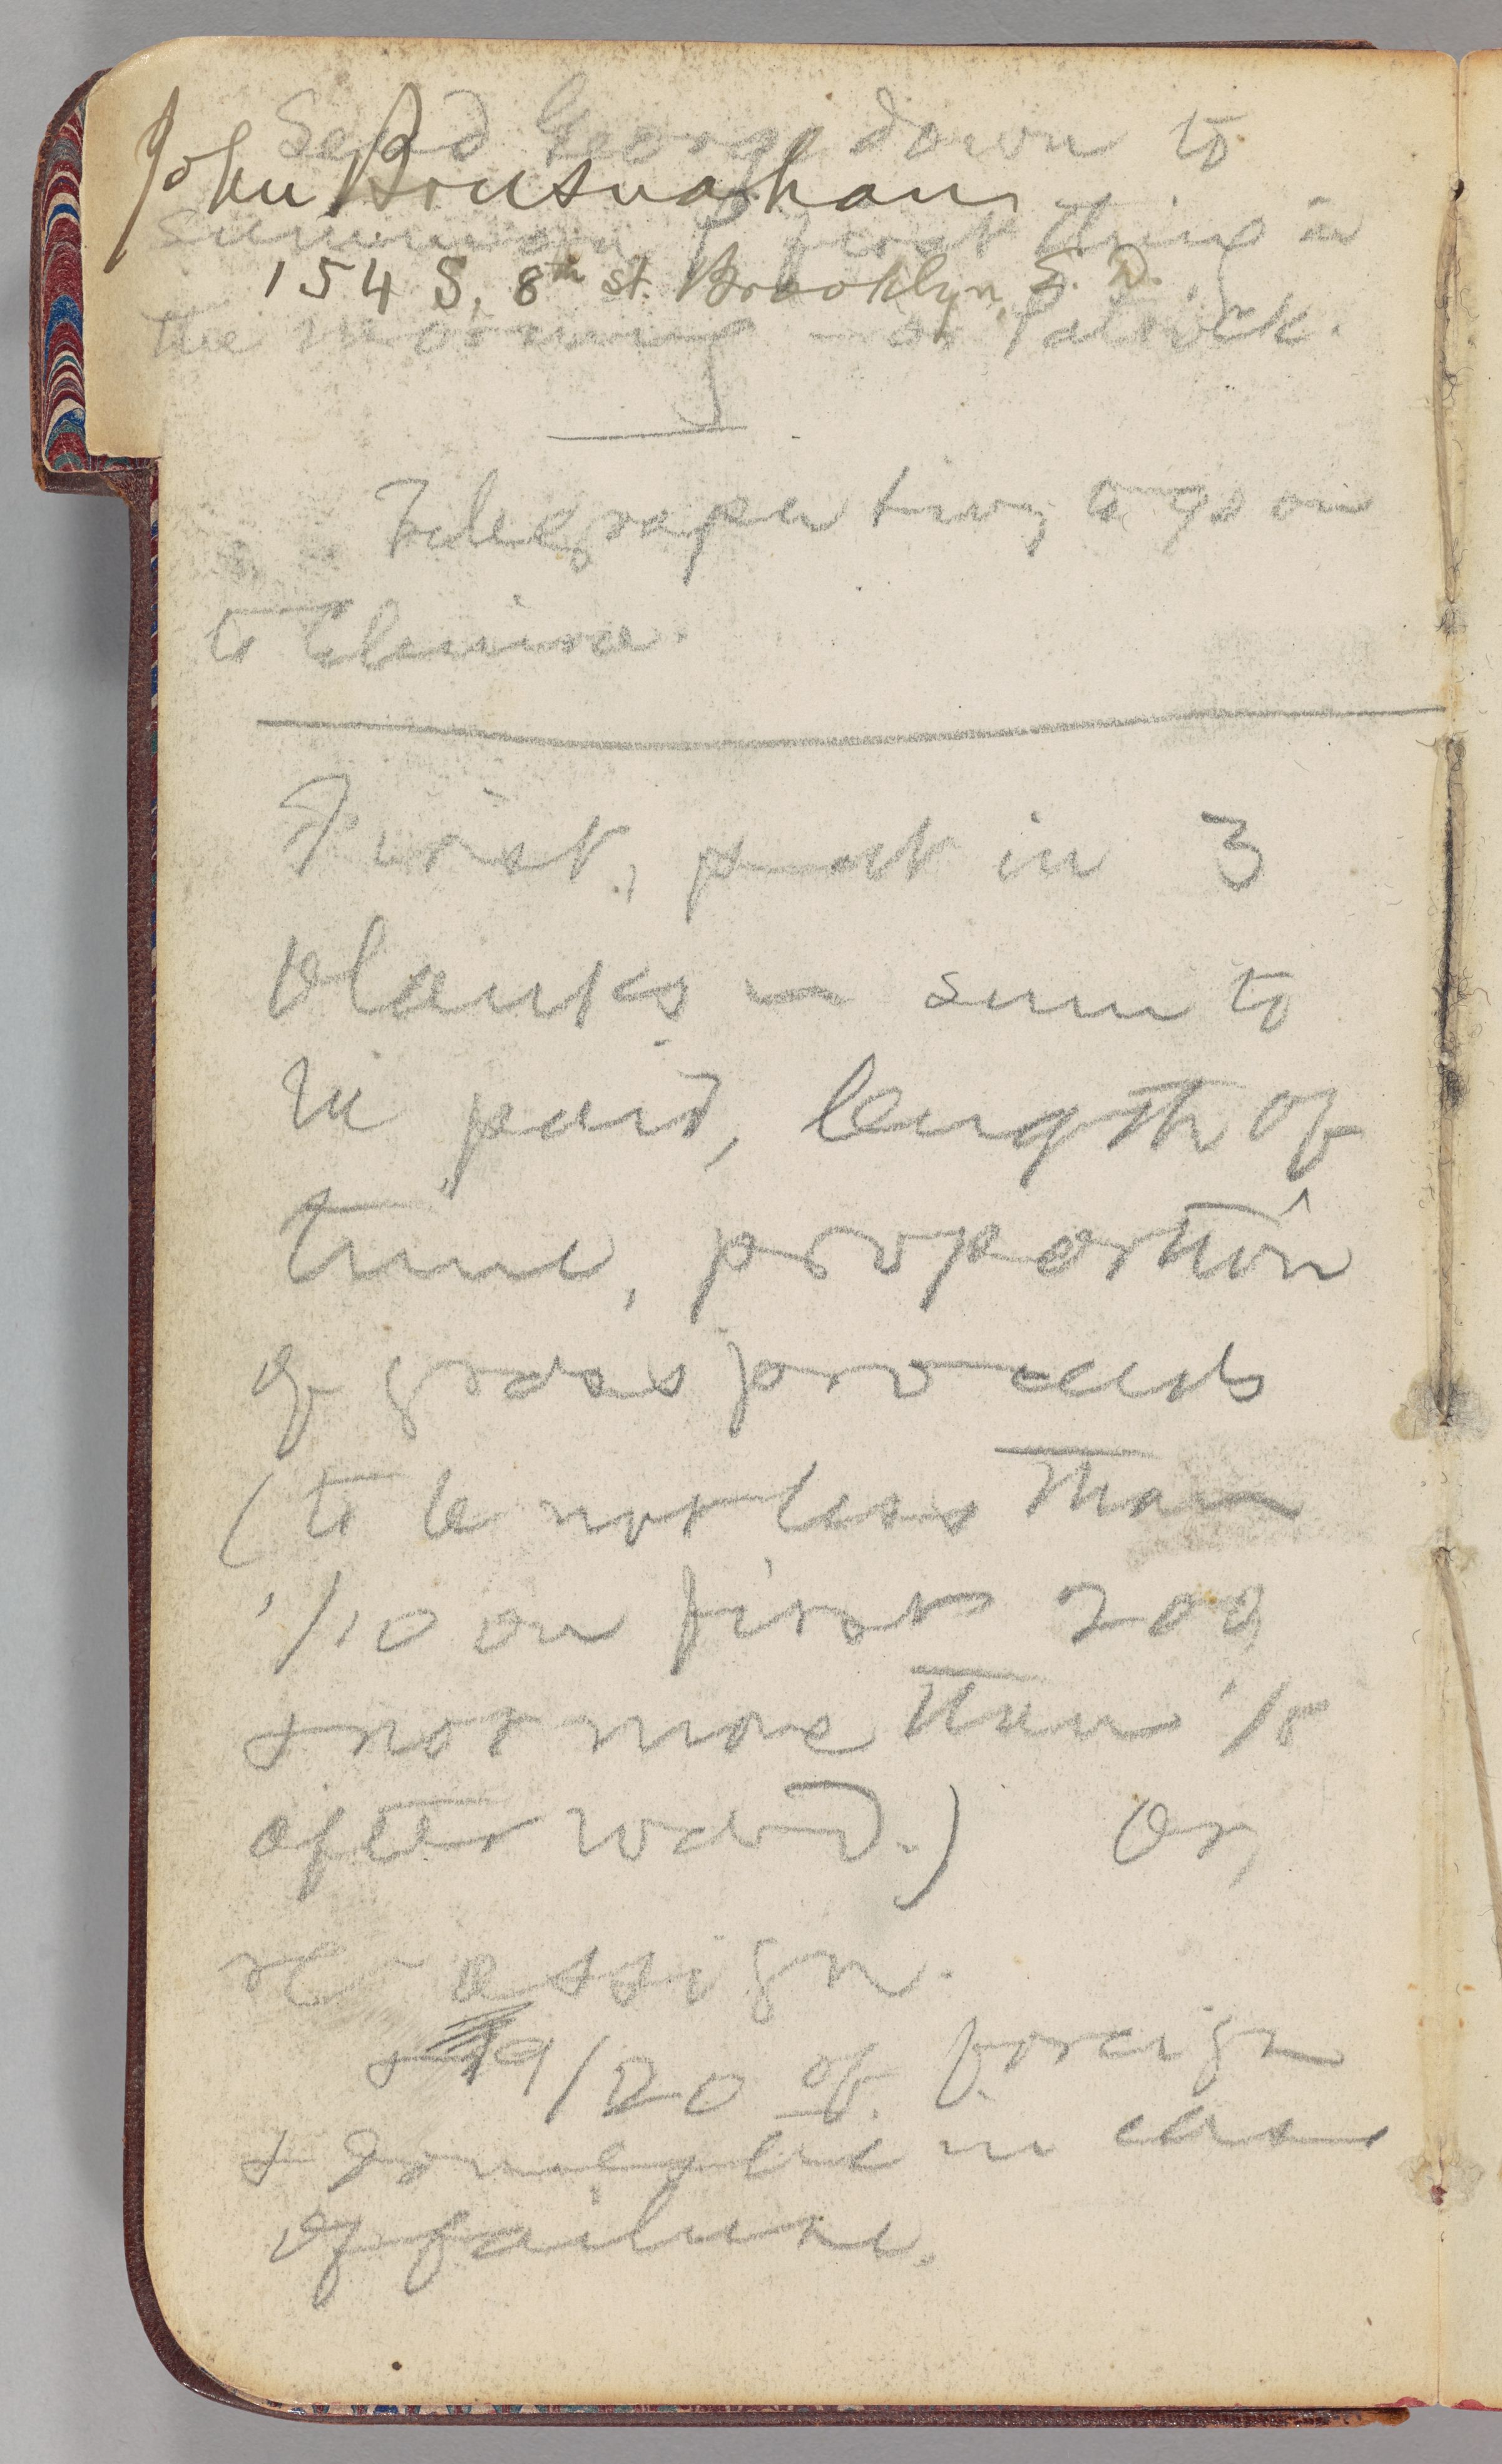 Send George down to
John Brusnahan
summon first thing in
154 S. 8th st. Brooklyn, E. D.
the morning — or Patrick.
Telegraph to go on
to Elmira.
First, put in 3
blanks — sum to
be paid, length of
time, proportion
of gross proceeds
(to be not less than
1/10 on first 200,
& not more than 1/5
afterward.) Or,
re-assign.
& 19/20 of foreign
& domestic in case
of failure.